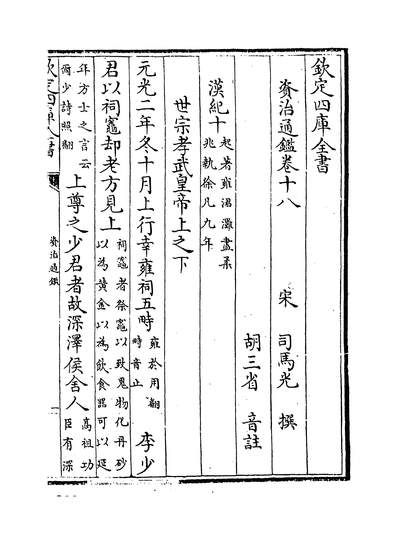 欽定四庫全書
資治通鑑卷十八
宋 司馬光 撰
胡三省 音註
漢紀十 起著雍涒灘盡柔兆執徐凡九年
世宗孝武皇帝上之下
元光二年冬十月上行幸雍祠五畤 雍於用翻畤音止 李少
君以祠竈却老方見上 祠竈者祭竈以致鬼物化丹砂以為黃金以為飲食器可以延
年方士之言云爾少詩照翻 上尊之少君者故深澤侯舍人 高祖功臣有深
欽定四庫全書
資治通鑑
一